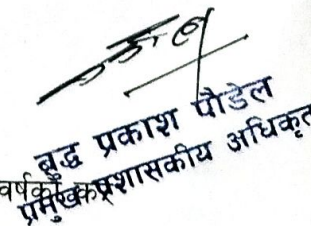 बुद्ध प्रकाश पौडेल
प्रमुख प्रशासकीय अधिकृत